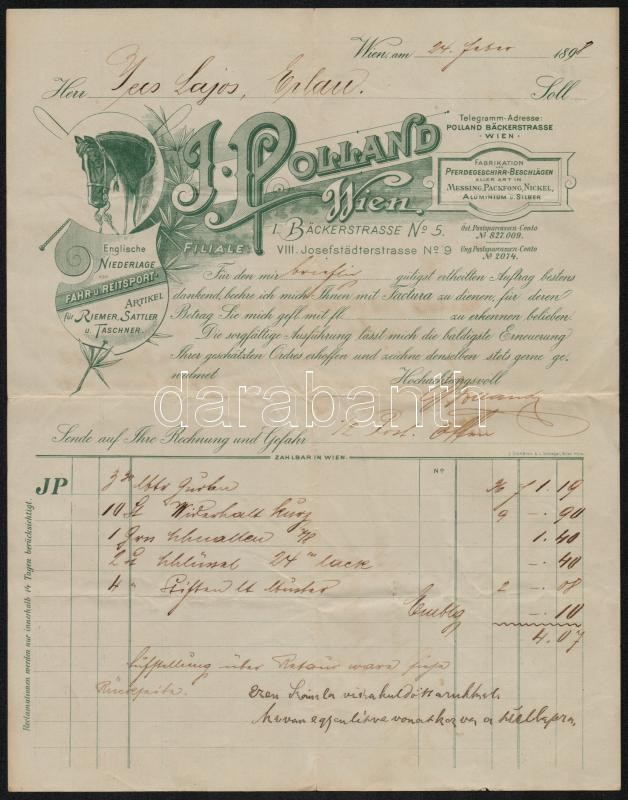 Wien, am 24. Feber 1898
Herr Lajos, Erlau. Soll
J. POLLAND
Wien
I. BÄCKERSTRASSE No 5.
FILIALE: VIII. Josefstädterstrasse No 9
Telegramm-Adresse:
POLLAND BÄCKERSTRASSE
WIEN
FABRIKATION
VON
PFERDEGESCHIRR-BESCHLÄGEN
ALLER ART IN
MESSING, PACKFONG, NICKEL,
ALUMINIUM U. SILBER
Öst. Postsparcassen-Conto
No 827.009.
Ung. Postsparcassen-Conto
No 2074.
Englische
NIEDERLAGE
von
FAHR- u. REITSPORT-
ARTIKEL
für RIEMER, SATTLER
u. TASCHNER.
Für den mir brieflich gütigst ertheilten Auftrag bestens
dankend, beehre ich mich Ihnen mit Factura zu dienen, für deren
Betrag Sie mich gefl. mit fl. zu erkennen belieben.
Die sorgfältige Ausführung lässt mich die baldigste Erneuerung
Ihrer geschätzten Ordres erhoffen und zeichne denselben stets gerne ge-
widmet
Hochachtungsvoll
JPolland
Sende auf Ihre Rechnung und Gefahr Post
ZAHLBAR IN WIEN.
No
JP
Reclamationen werden nur innerhalb 14 Tagen berücksichtigt.
3 Gurten 1.19
10 Widerhalt kurz 9 -.90
1 Schnallen 1.40
2 Schlüssel 24 lack -.40
4 " Stiften lt Muster 2 -.08
Emblg -.10
4.07
Aufstellung über Retour ware siehe
Rückseite.
Ezen számla
darabanth